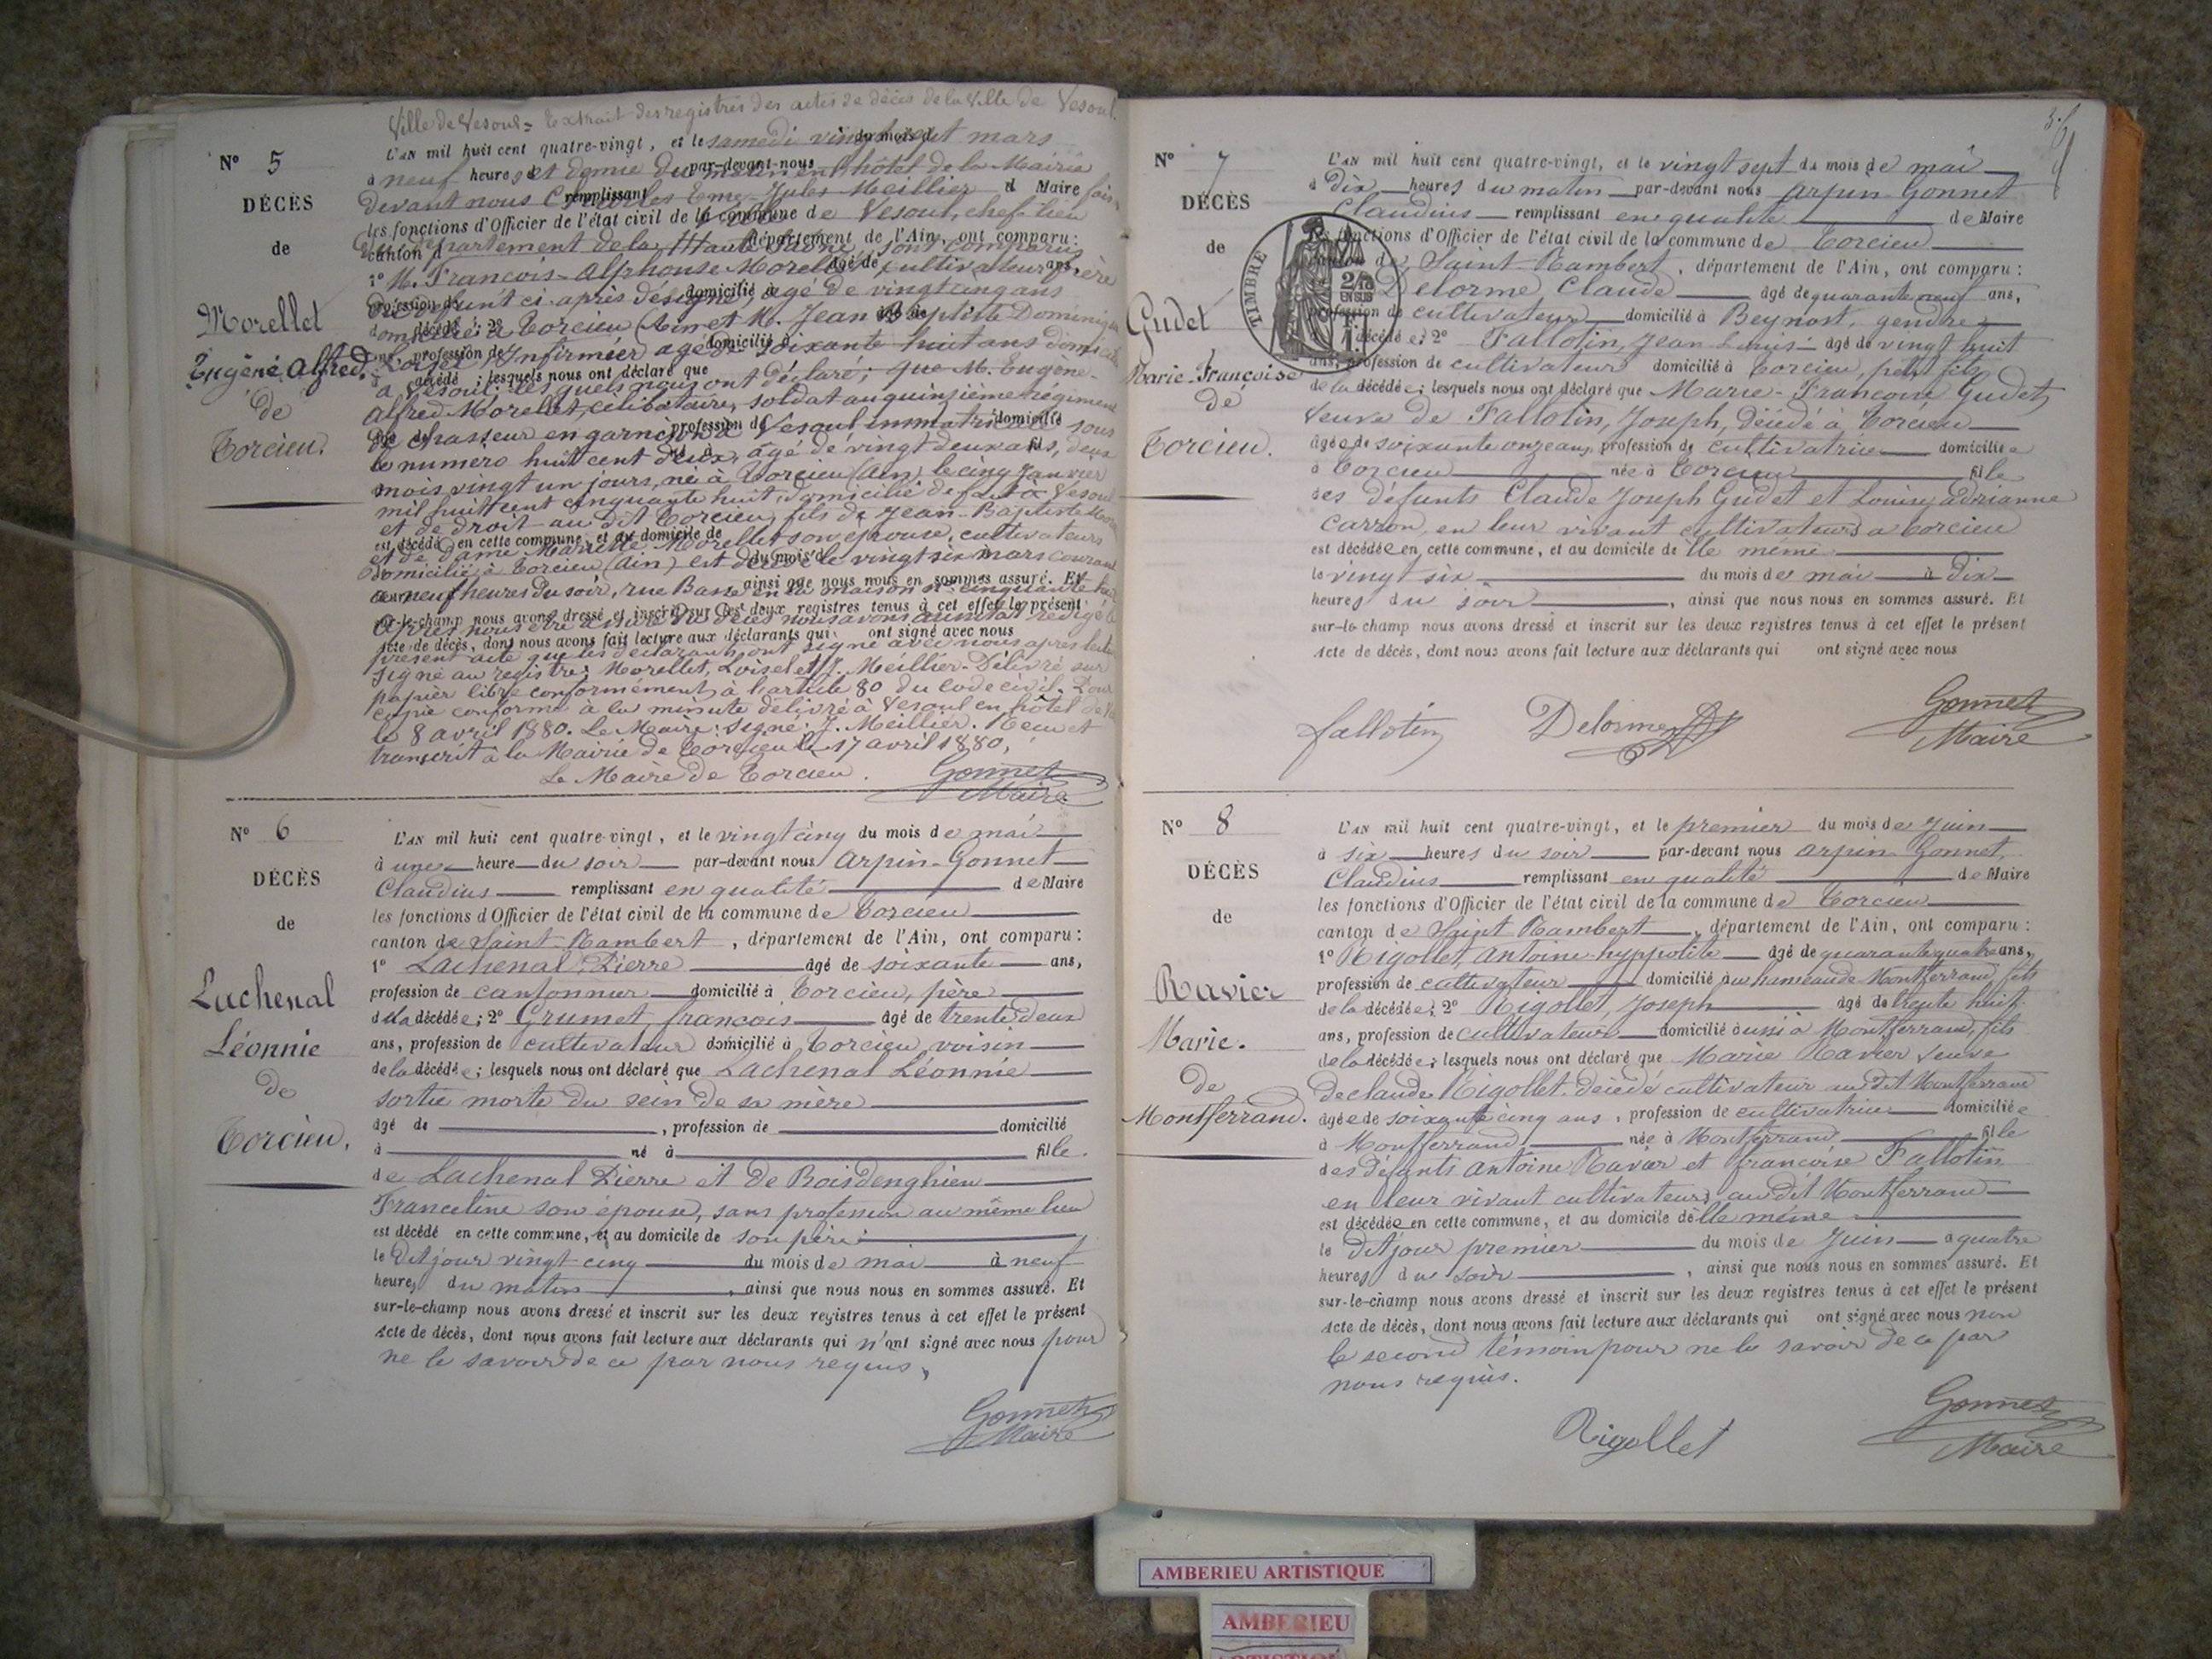 Ville de Vesoul = Extrait des registres des actes de décès de la Ville de Vesoul.
N° 5
DÉCÈS
de
Morellet
Eugène Alfred.
de
Torcieu.
L'AN mil huit cent quatre-vingt, et le samedi vingt sept mars
à neuf heures et demie du matin en l'hôtel de la Mairie
devant nous Charles Jules Meillier Maire
les fonctions d'Officier de l'état civil de la commune de Vesoul, chef-lieu
du département de la Haute Saône, sont comparus
1° M. François-Alphonse Morellet, cultivateur, frère
du défunt ci-après désigné, âgé de vingt cinq ans
domicilié à Torcieu (Ain) et M. Jean Baptiste Dominique
Loiselet Infirmier, âgé de soixante huit ans domicilié
à Vesoul; lesquels nous ont déclaré; que M. Eugène-
Alfred Morellet, célibataire, soldat au quinzième régiment
de chasseur en garnison à Vesoul immatriculé sous
le numéro huit cent deux, âgé de vingt deux ans, deux
mois vingt un jours, né à Torcieu (Ain) le cinq janvier
mil huit cent cinquante huit, domicilié de fait à Vesoul
et de droit au dit Torcieu, fils de Jean-Baptiste
et de dame Mariette Morellet son épouse, cultivateurs
domiciliés à Torcieu (Ain) est décédé le vingt six mars courant
à neuf heures du soir, rue Basse en la maison n° cinquante
Après nous être assuré du décès nous avons aussitôt rédigé le
présent acte que les déclarants ont signé avec nous après lecture
signé au registre: Morellet, Loiselet, J. Meillier. Délivré sur
papier libre conformément à l'article 80 du Code civil. Pour
copie conforme à la minute délivré à Vesoul en hôtel de
le 8 avril 1880. Le Maire: signé: J. Meillier. Reçu et
transcrit à la Mairie de Torcieu le 17 avril 1880,
Le Maire de Torcieu. Gonnet
Maire
N° 6
DÉCÈS
de
Lachenal
Léonnie
de
Torcieu.
L'AN mil huit cent quatre-vingt, et le vingt cinq du mois de mai
à une heure du soir par-devant nous Arpin-Gonnet
Claudius remplissant en qualité de Maire
les fonctions d'Officier de l'état civil de la commune de Torcieu
canton de Saint-Rambert, département de l'Ain, ont comparu:
1° Lachenal Pierre âgé de soixante ans,
profession de cantonnier domicilié à Torcieu, père
de la décédée; 2° Grumet, françois âgé de trente deux
ans, profession de cultivateur domicilié à Torcieu, voisin
de la décédée; lesquels nous ont déclaré que Lachenal Léonnie
sortie morte du sein de sa mère
âgé de , profession de domicilié
à né à fille
de Lachenal Pierre et de Boisdenghien
Franceline son épouse, sans profession au même lieu
est décédé en cette commune, et au domicile de son père
le dit jour vingt cinq du mois de mai à neuf
heures du matin, ainsi que nous nous en sommes assuré. Et
sur-le-champ nous avons dressé et inscrit sur les deux registres tenus à cet effet le présent
Acte de décès, dont nous avons fait lecture aux déclarants qui n'ont signé avec nous pour
ne le savoir de ce par nous requis.
Gonnet
Maire
N° 7
DÉCÈS
de
Gudet
Marie-Françoise
de
Torcieu.
TIMBRE
L'AN mil huit cent quatre-vingt, et le vingt sept du mois de mai
à dix heures du matin par-devant nous Arpin-Gonnet
Claudius remplissant en qualité de Maire
les fonctions d'Officier de l'état civil de la commune de Torcieu
canton de Saint-Rambert, département de l'Ain, ont comparu:
Delorme Claude âgé de quarante neuf ans,
profession de cultivateur domicilié à Beynost, gendre
décédée; 2° Fallotin, Jean âgé de vingt huit
ans, profession de cultivateur domicilié à Torcieu, petit fils
de la décédée; lesquels nous ont déclaré que Marie-Françoise Gudet,
veuve de Fallotin, Joseph, décédé à Torcieu
âgée de soixante onze ans, profession de cultivatrice domiciliée
à Torcieu née à Torcieu fille
des défunts Claude Joseph Gudet et Louise adrianne
Carron, en leur vivant cultivateurs à Torcieu
est décédée en cette commune, et au domicile de elle même
le vingt six du mois de mai à dix
heures du soir, ainsi que nous nous en sommes assuré. Et
sur-le-champ nous avons dressé et inscrit sur les deux registres tenus à cet effet le présent
Acte de décès, dont nous avons fait lecture aux déclarants qui ont signé avec nous
fallotin Delorme Gonnet
Maire
N° 8
DÉCÈS
de
Ravier
Marie.
de
Montferrand.
L'AN mil huit cent quatre-vingt, et le premier du mois de Juin
à six heures du soir par-devant nous Arpin-Gonnet,
Claudius remplissant en qualité de Maire
les fonctions d'Officier de l'état civil de la commune de Torcieu
canton de Saint Rambert, département de l'Ain, ont comparu:
1° Rigollet, Antoine-hyppolite âgé de quarante quatre ans,
profession de cultivateur domicilié au hameau de Montferrand, fils
de la décédée; 2° Rigollet, Joseph âgé de trente huit
ans, profession de cultivateur domicilié aussi à Montferrand, fils
de la décédée; lesquels nous ont déclaré que Marie Ravier veuve
de claude Rigollet, décédé cultivateur au dit Montferrand
âgée de soixante cinq ans, profession de cultivatrice domiciliée
à Montferrand née à Montferrand fille
des défunts Antoine Ravier et françoise Fallotin
en leur vivant cultivateurs au dit Montferrand
est décédée en cette commune, et au domicile d'elle même
le dit jour premier du mois de Juin à quatre
heures du soir, ainsi que nous nous en sommes assuré. Et
sur-le-champ nous avons dressé et inscrit sur les deux registres tenus à cet effet le présent
Acte de décès, dont nous avons fait lecture aux déclarants qui ont signé avec nous non
le second témoin pour ne le savoir de ce par
nous requis.
Rigollet Gonnet
Maire
AMBERIEU ARTISTIQUE
AMBERIEU
ARTISTIQUE